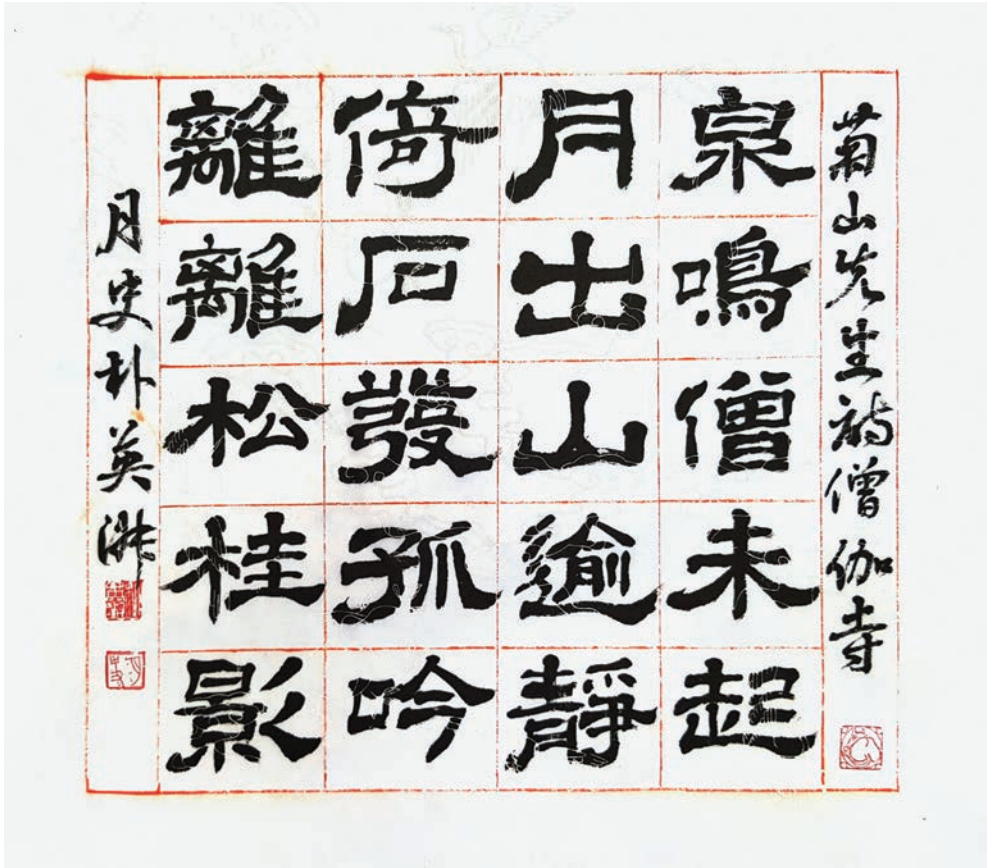 菊山先生詩僧伽寺
泉鳴僧未起
月出山逾靜
倚石發孤吟
離離松桂影
月史朴英淋